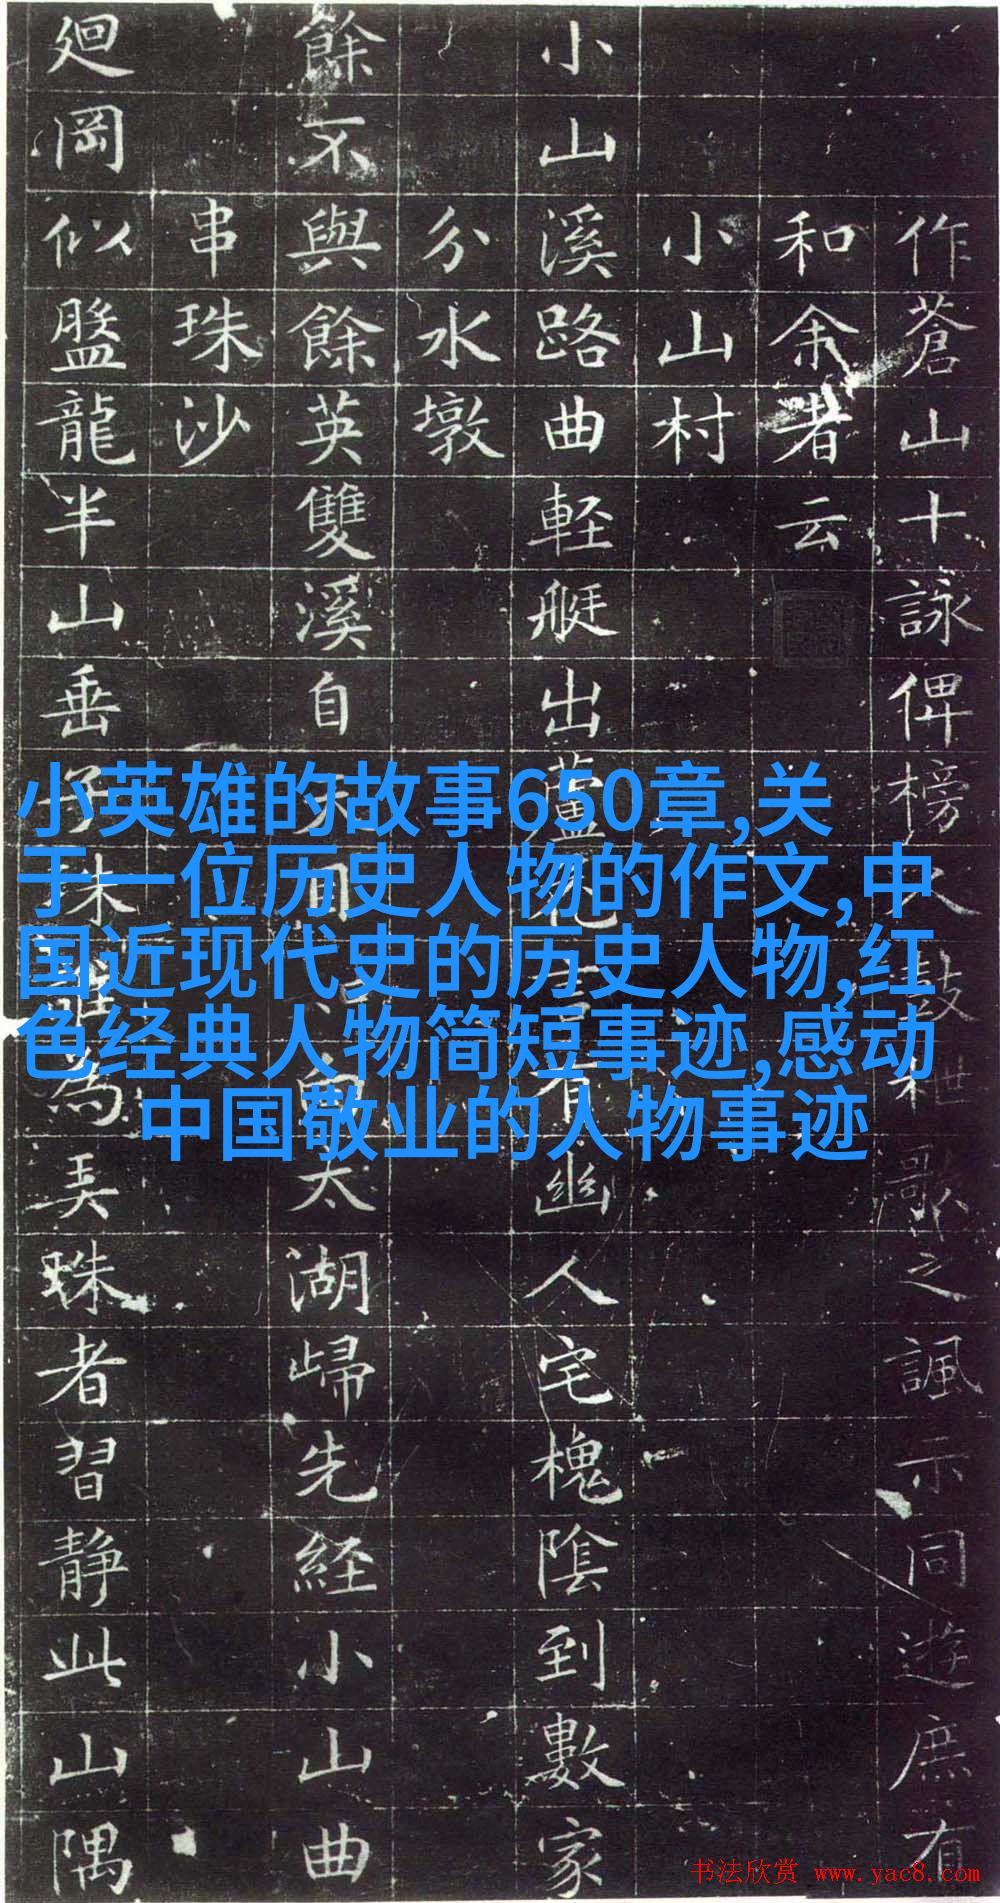 作蒼山十詠俾榜人鼓枻歌之諷示同遊庶有
和余者云
小山村
小山溪路曲軽艇出蘆花言有幽人宅槐陰到數家
分水墩
餘不與餘英雙溪自 太湖歸先経小山曲
串珠沙
廻岡似盤龍半山垂子珠誰為弄珠者習静此山隅
小英雄的故事650章,关
于一位历史人物的作文,中
国近现代史的历史人物,红
色经典人物简短事迹,感动
中国敬业的人物事迹
书法欣赏 www.yac8.com